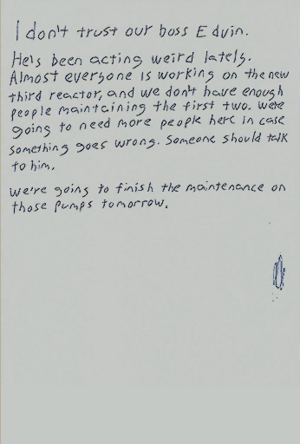 I don't trust our boss Edvin.
He's been acting weird lately.
Almost everyone is working on the new
third reactor, and we don't have enough
people maintaining the first two. We're
going to need more people here in case
something goes wrong. Someone should talk
to him.
We're going to finish the maintenance on
those pumps tomorrow.